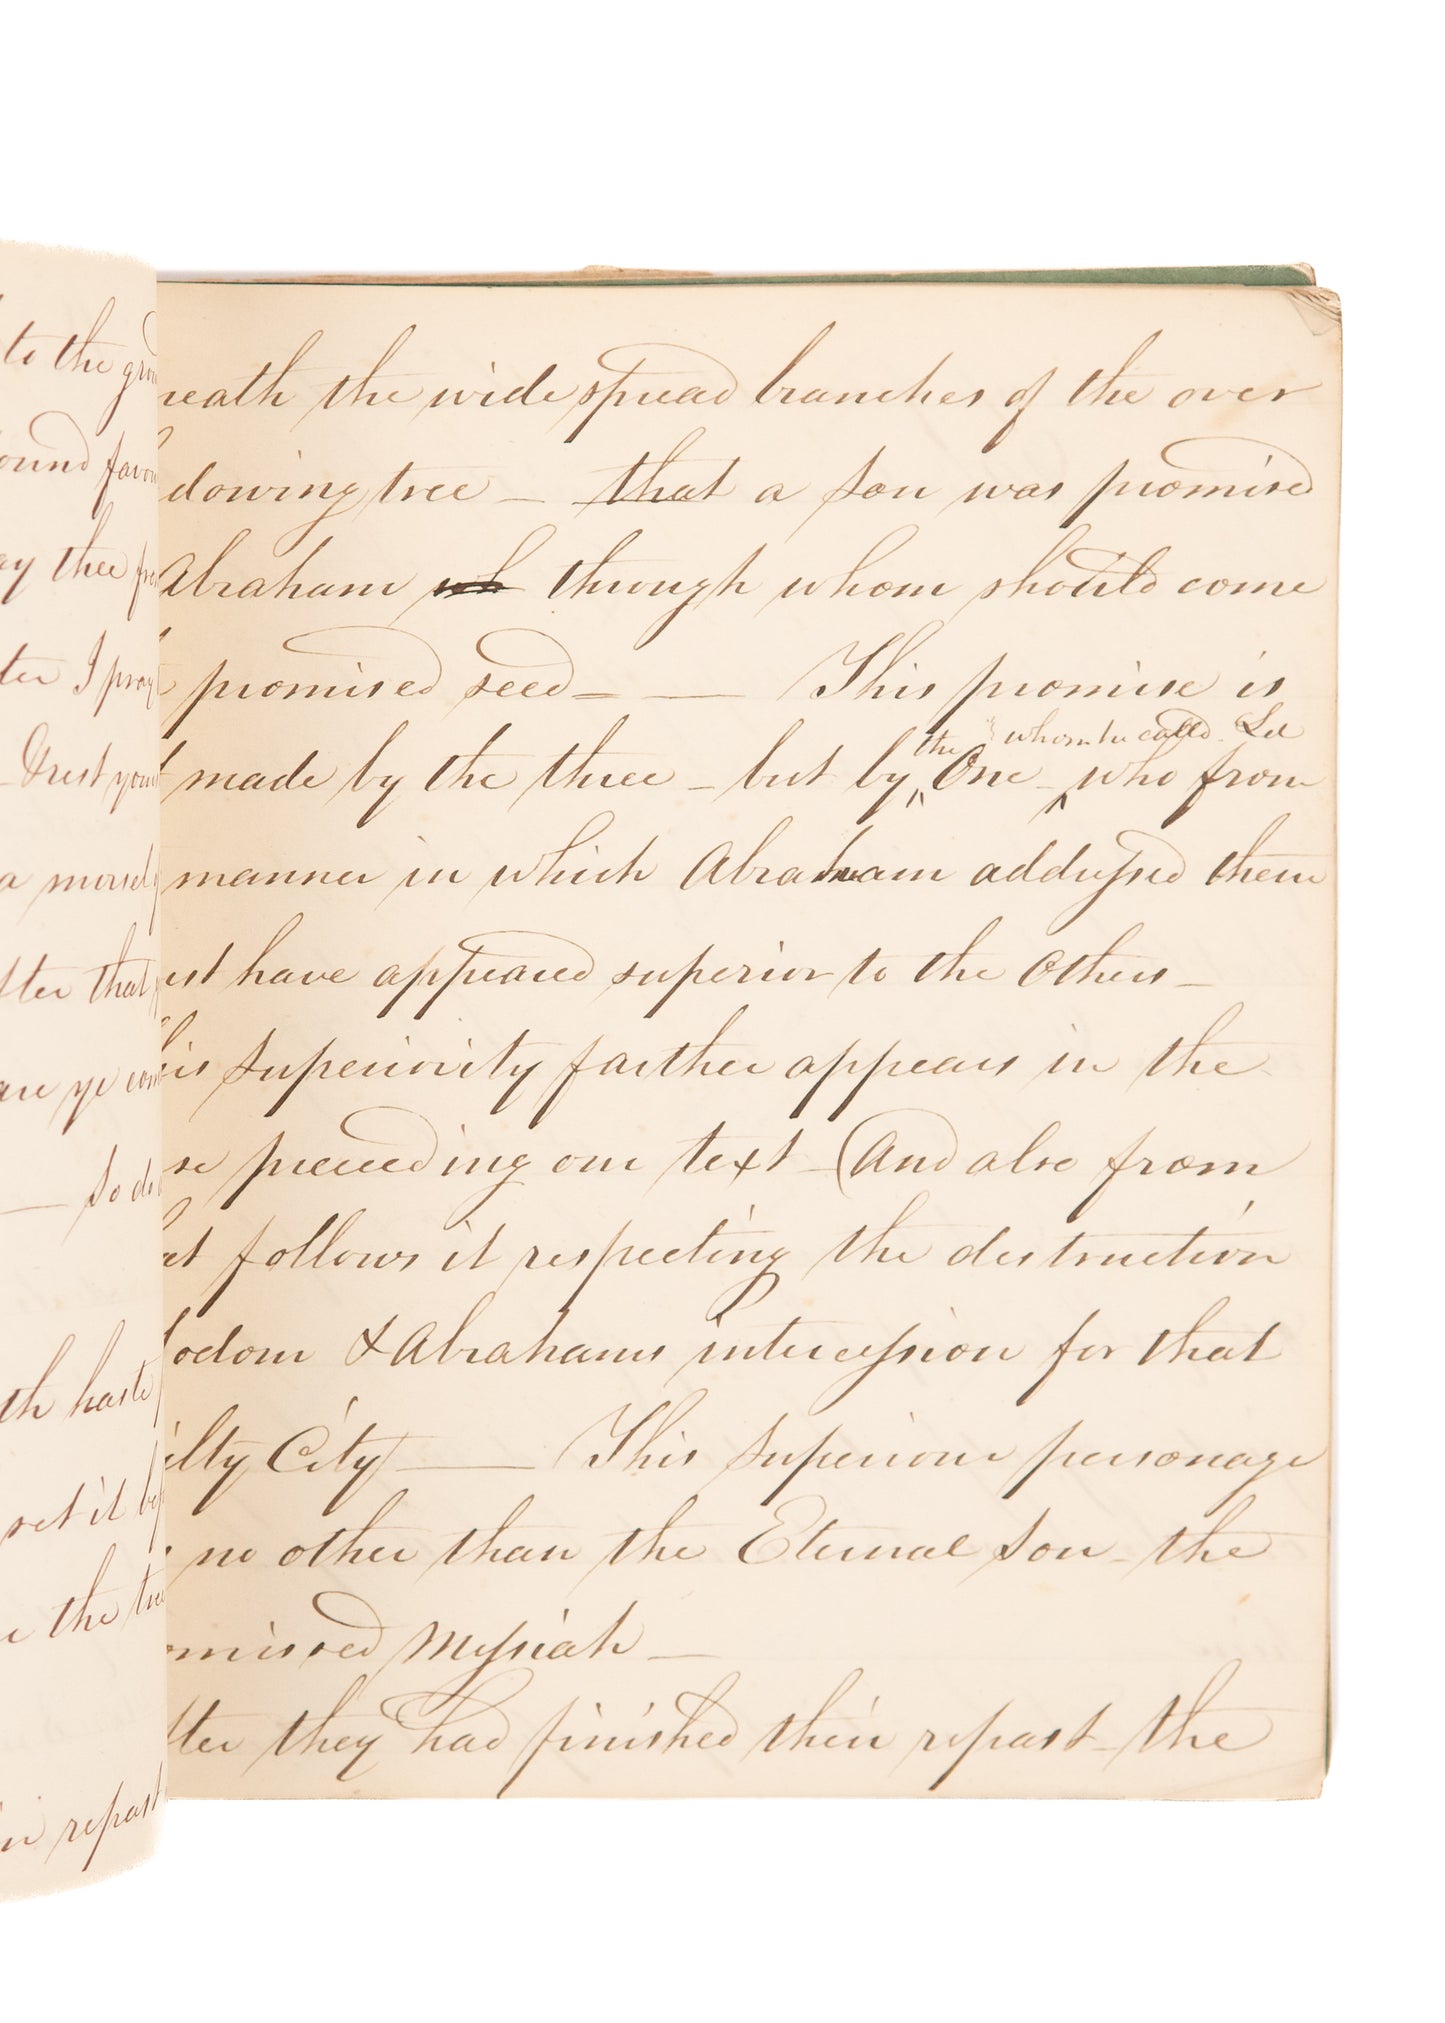 to the
ound favou
ay thee
ter I pray
- & rest your
a morsel
fter that
are ye com
— So do
th haste
set it
the tree
repast
neath the wide spread branches of the over
dowing tree — that a Son was promised
Abraham through whom should come
promised seed — — This promise is
the whom he called
made by the three — but by One — who from
manner in which Abraham addressed them
ust have appeared superior to the Others —
his Superiority farther appears in the
se preceeding our text — (And also from
hat follows it respecting the destruction
Sodom & Abrahams intercession for that
ilty City) — This Superiour personage
no other than the Eternal Son — the
omissed Messiah —
fter they had finished their repast — the